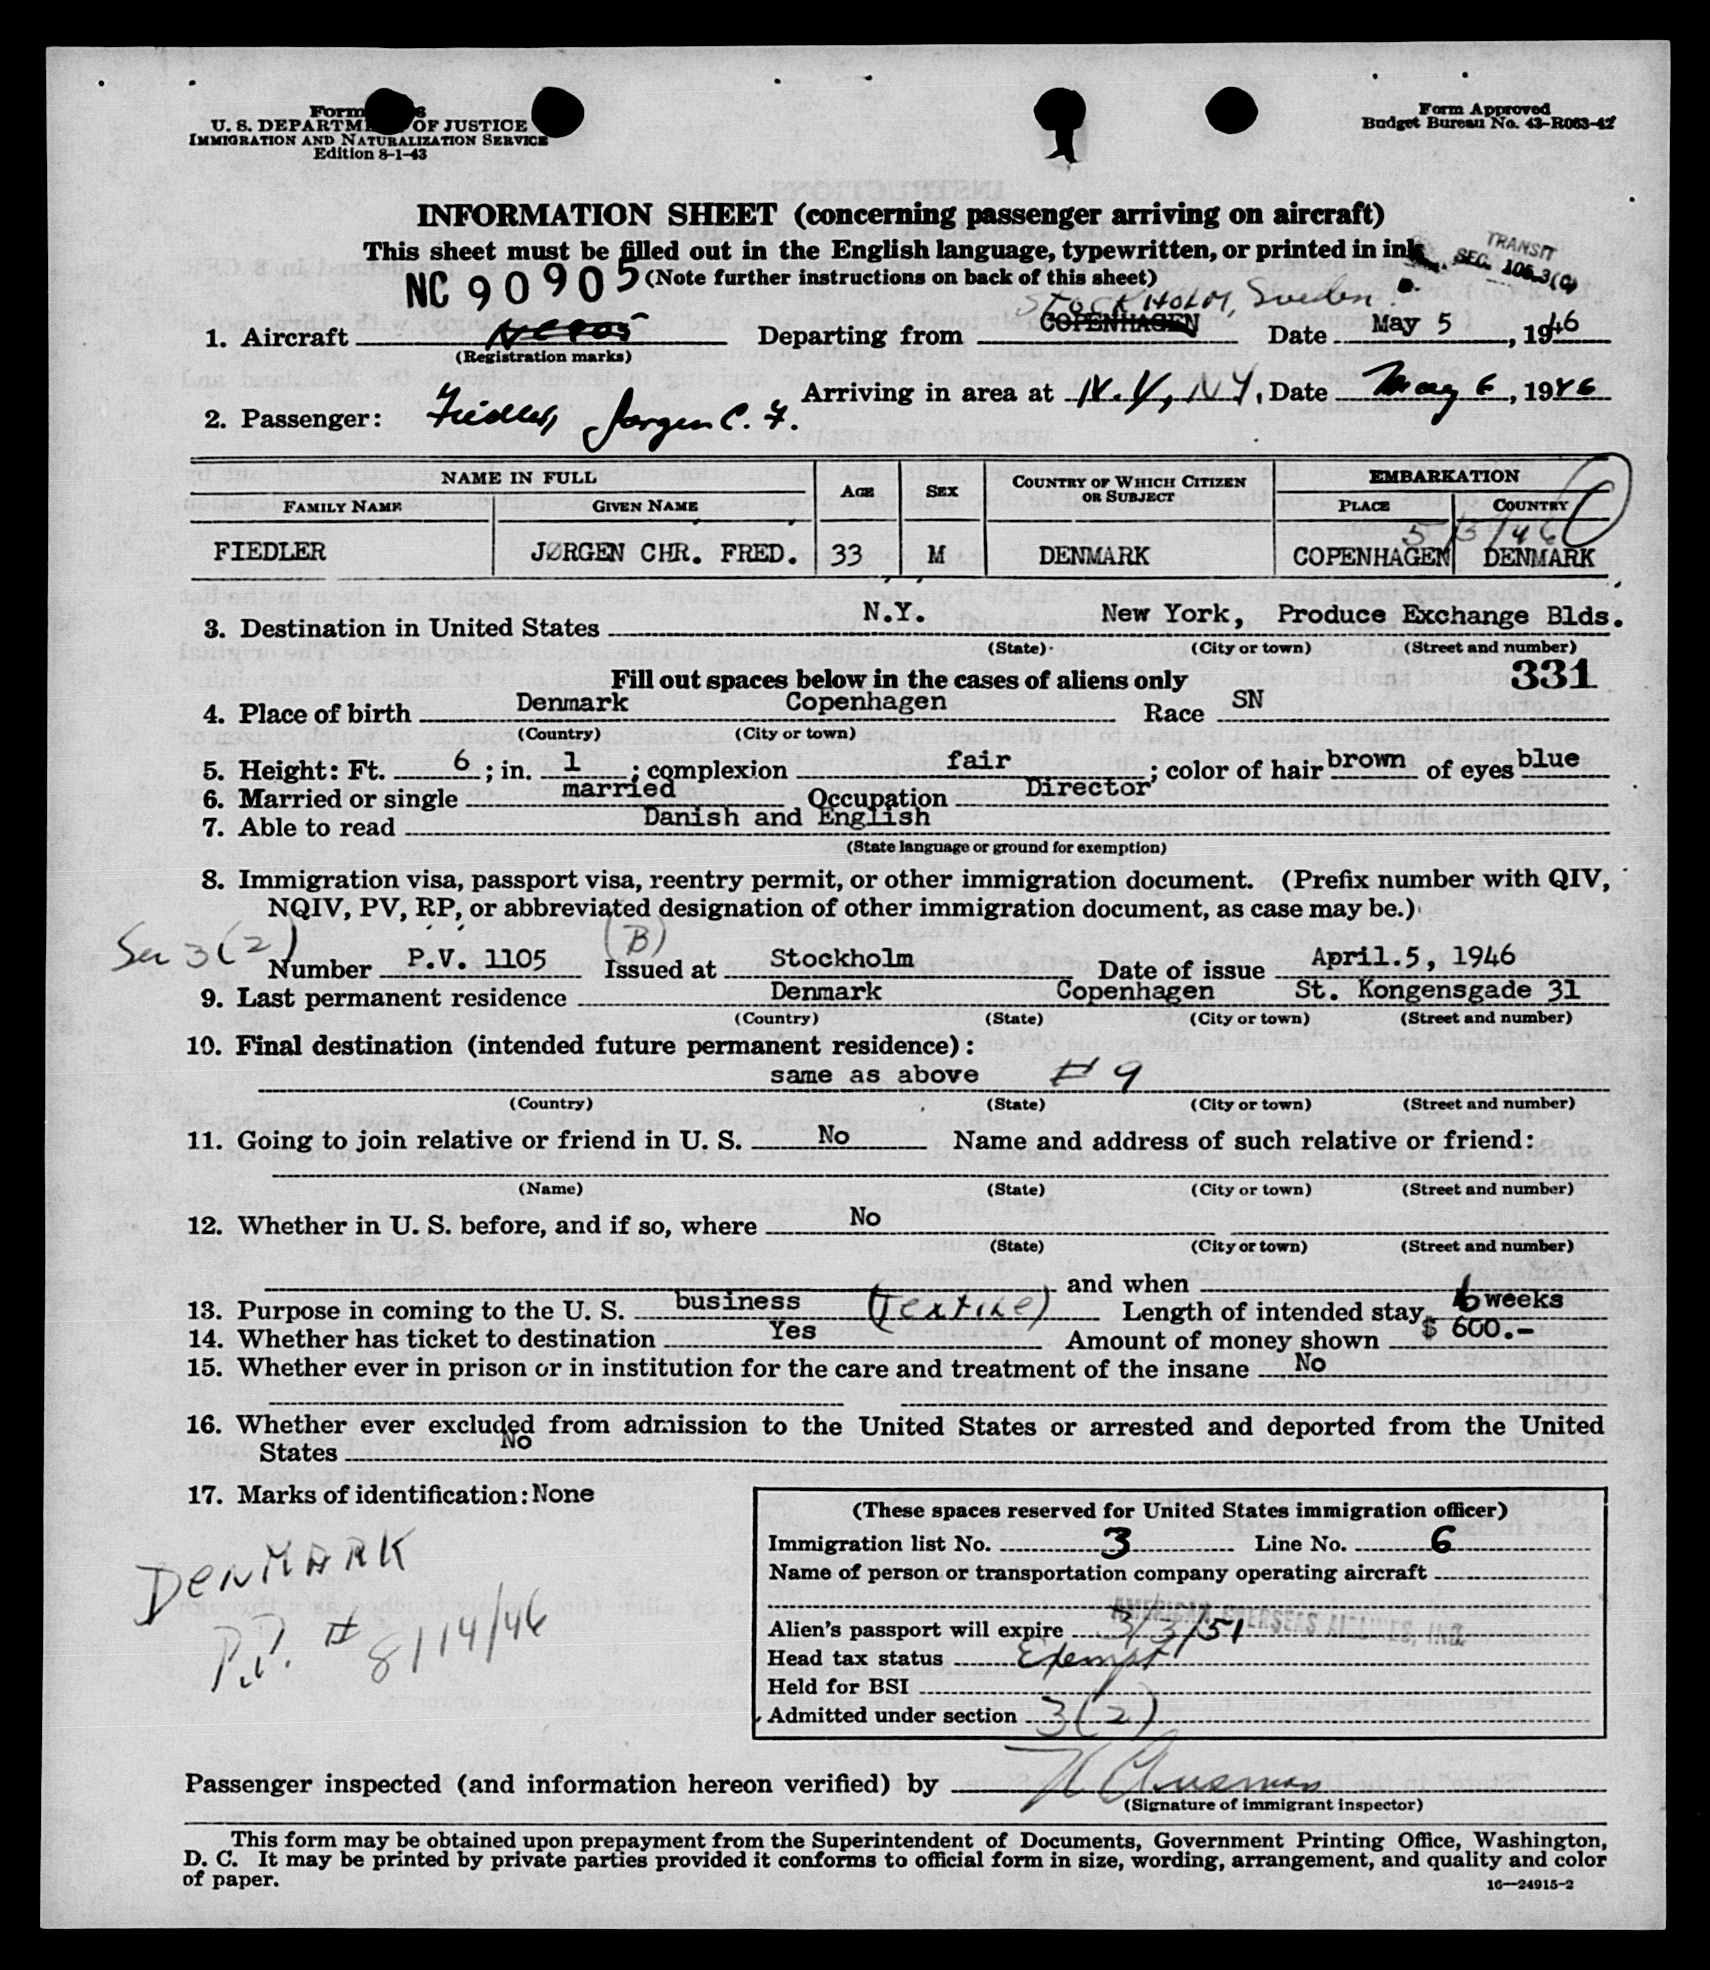 U. S. DEPARTM OF JUSTICE
IMMIGRATION AND NATURALIZATION SERVICE
Edition 8-1-43
Form Approved
Budget Bureau No. 43-R063-42
INFORMATION SHEET (concerning passenger arriving on aircraft)
This sheet must be filled out in the English language, typewritten, or printed in ink.
TRANSIT
SEC. 105.3(C)
NC 90905 (Note further instructions on back of this sheet)
STOCKHOLM, Sweden
1. Aircraft Departing from COPENHAGEN Date May 5, 1946
(Registration marks)
Arriving in area at N.Y, NY, Date May 6, 1946
2. Passenger: Fiedler, Jorgen C. F.
NAME IN FULL AGE SEX COUNTRY OF WHICH CITIZEN OR SUBJECT EMBARKATION
FAMILY NAME GIVEN NAME PLACE COUNTRY
5/3/46
FIEDLER JØRGEN CHR. FRED. 33 M DENMARK COPENHAGEN DENMARK
3. Destination in United States N.Y. New York, Produce Exchange Blds.
(State) (City or town) (Street and number)
Fill out spaces below in the cases of aliens only 331
4. Place of birth Denmark Copenhagen Race SN
(Country) (City or town)
5. Height: Ft. 6; in. 1; complexion fair; color of hair brown of eyes blue
6. Married or single married Occupation Director
7. Able to read Danish and English
(State language or ground for exemption)
8. Immigration visa, passport visa, reentry permit, or other immigration document. (Prefix number with QIV,
NQIV, PV, RP, or abbreviated designation of other immigration document, as case may be.)
Sec 3(2) (B)
Number P.V. 1105 Issued at Stockholm Date of issue April.5, 1946
9. Last permanent residence Denmark Copenhagen St. Kongensgade 31
(Country) (State) (City or town) (Street and number)
10. Final destination (intended future permanent residence):
same as above # 9
(Country) (State) (City or town) (Street and number)
11. Going to join relative or friend in U. S. No Name and address of such relative or friend:
(Name) (State) (City or town) (Street and number)
12. Whether in U. S. before, and if so, where No
(State) (City or town) (Street and number)
and when
13. Purpose in coming to the U. S. business (Textile) Length of intended stay 6 weeks
14. Whether has ticket to destination Yes Amount of money shown $ 600.-
15. Whether ever in prison or in institution for the care and treatment of the insane No
16. Whether ever excluded from admission to the United States or arrested and deported from the United
States No
17. Marks of identification: None
DENMARK
P.P. # 8/14/46
(These spaces reserved for United States immigration officer)
Immigration list No. 3 Line No. 6
Name of person or transportation company operating aircraft
AMERICAN OVERSEAS AIRLINES, INC.
Alien's passport will expire 3/3/51
Head tax status Exempt
Held for BSI
Admitted under section 3(2)
Passenger inspected (and information hereon verified) by
(Signature of immigrant inspector)
This form may be obtained upon prepayment from the Superintendent of Documents, Government Printing Office, Washington,
D. C. It may be printed by private parties provided it conforms to official form in size, wording, arrangement, and quality and color
of paper.
16—24915-2